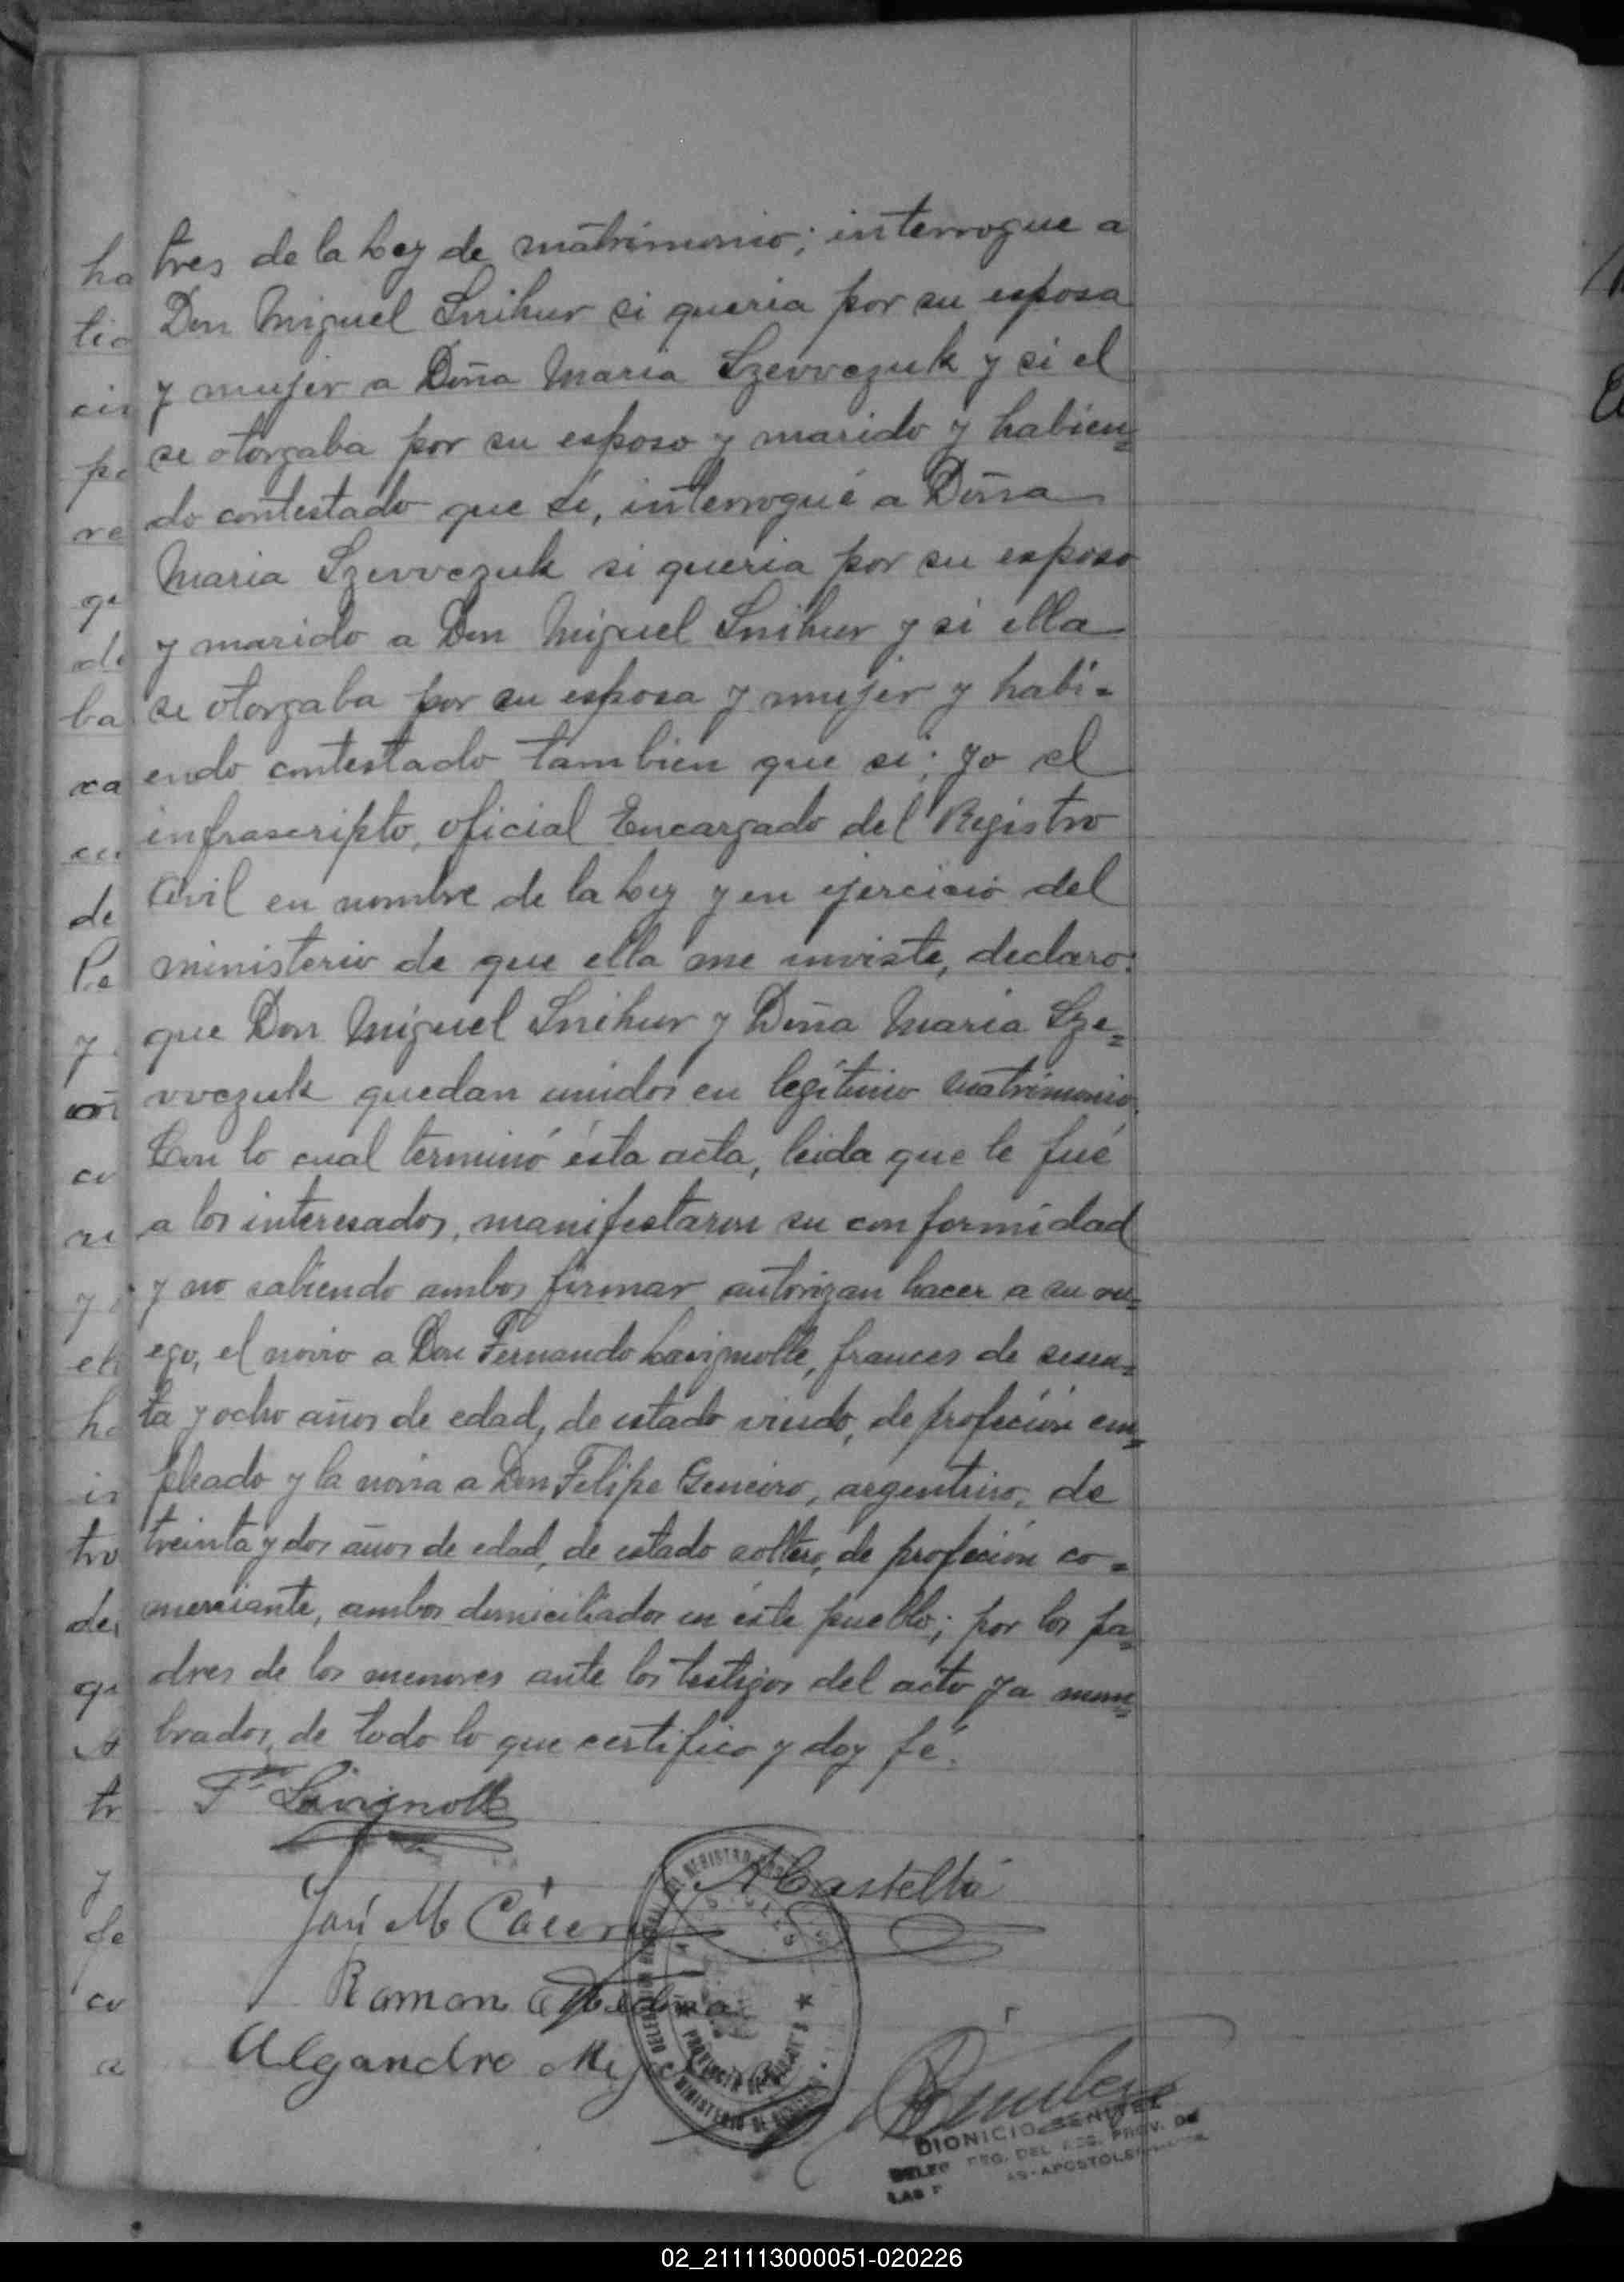 tres de la Ley de matrimonio; interrogue a
Don Miguel Snihur si queria por su esposa
y mujer a Doña Maria Szevvczuk y si el
se otorgaba por su esposo y marido y habien=
do contestado que sí, interrogué a Doña
Maria Szevvczuk si queria por su esposo
y marido a Don Miguel Snihur y si ella
se otorgaba por su esposa y mujer y habi=
endo contestado tambien que si; yo el
infrascripto, oficial Encargado del Registro
Civil en nombre de la Ley y en ejercicio del
ministerio de que ella me inviste, declaro:
que Don Miguel Snihur y Doña Maria Sze=
vvczuk quedan unidos en legítimo matrimonio.
Con lo cual terminó ésta acta, leida que le fué
a los interesados, manifestaron su conformidad
y no sabiendo ambos firmar autorizan hacer a su ru=
ego, el novio a Don Fernando Lavignolle, frances de sesen=
ta y ocho años de edad, de estado viudo, de profeción em=
pleado y la novia a Don Felipe Geneiro, argentino, de
treinta y dos años de edad, de estado soltero, de profeción co=
merciante, ambos domiciliados en éste pueblo; por los pa=
dres de los menores ante los testigos del acto ya nom=
brados, de todo lo que certifico y doy fé.
F. Lavignolle
A Castellá
José M Cácer
Ramon
Alejandro
DIONICIO BENITEZ
DELEG. REG. DEL REG. PROV. DE
LAS P AS-APOSTOLES
02_211113000051-020226